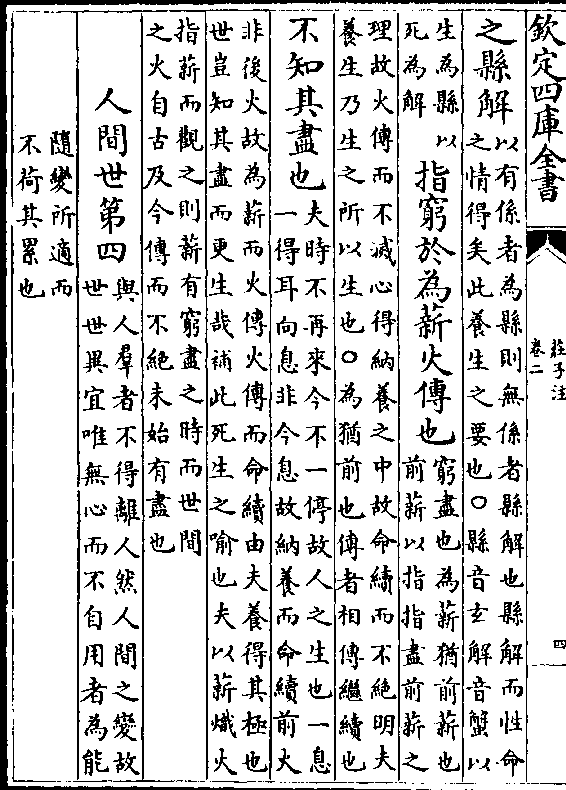 欽定四庫全書
莊子注
卷二
四
之縣解
以有係者為縣則無係者縣解也縣解而性命
之情得矣此養生之要也○縣音玄解音蟹以
生為縣以
死為解
指窮於為薪火傳也
窮盡也為薪猶前薪也
前薪以指指盡前薪之
理故火傳而不滅心得納養之中故命續而不絶明夫
養生乃生之所以生也○為猶前也傳者相傳繼續也
不知其盡也
夫時不再來今不一停故人之生也一息
一得耳向息非今息故納養而命續前火
非後火故為薪而火傳火傳而命續由夫養得其極也
世豈知其盡而更生哉補此死生之喻也夫以薪熾火
指薪而觀之則薪有窮盡之時而世間
之火自古及今傳而不絶未始有盡也
人間世第四
與人羣者不得離人然人間之變故
世世異宜唯無心而不自用者為能
隨變所適而
不荷其累也